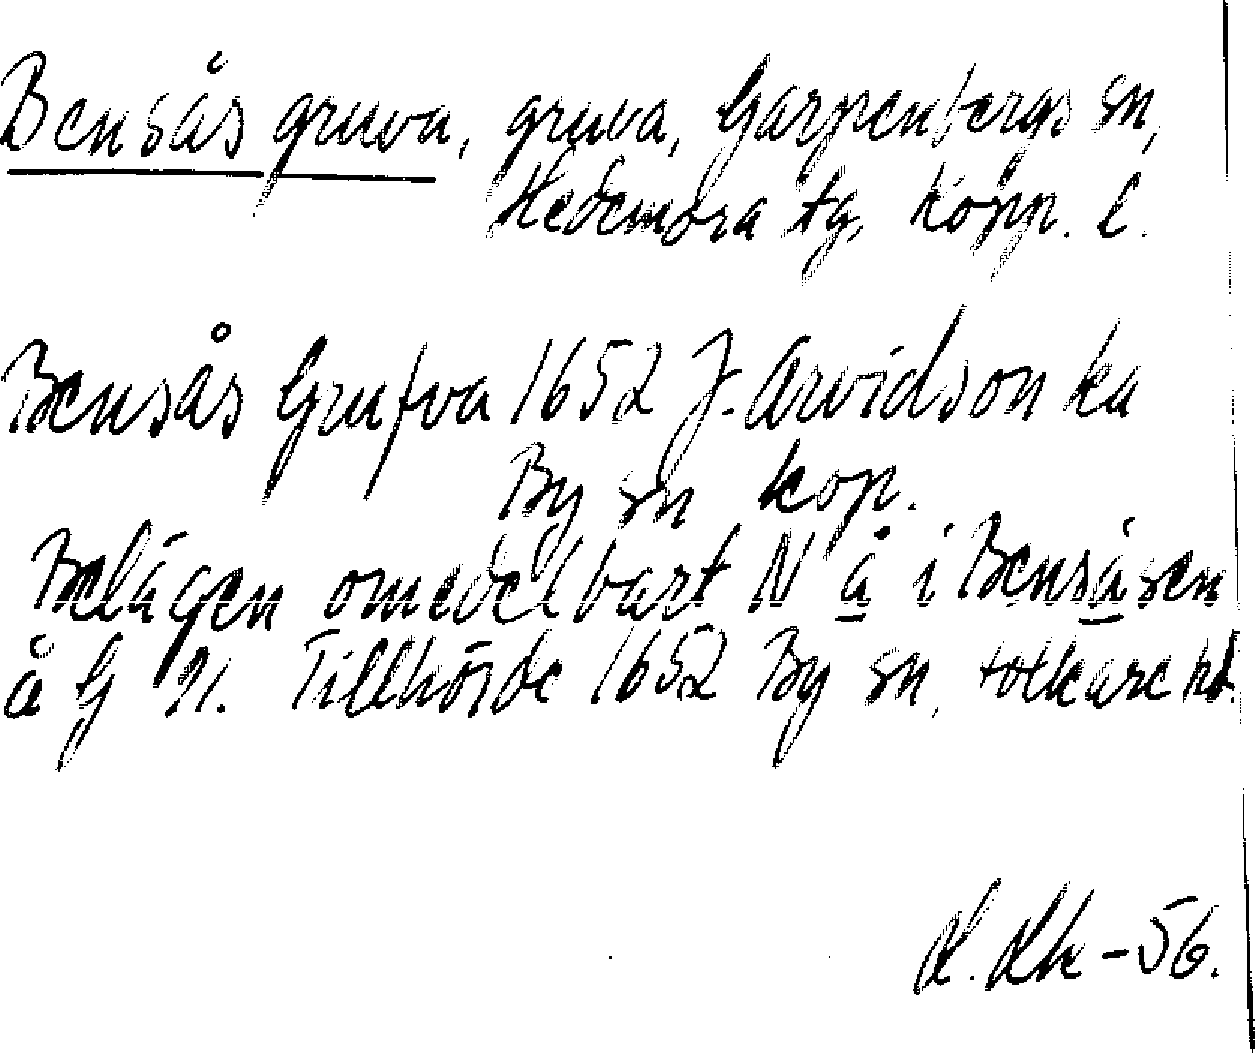 Bensås gruva, gruva, Garpenbergs sn,
Hedemora tg, Kopp. l.
Bensås Grufva 1652 J. Arvidson ka
By sn kop.
Belägen omedelbart N å i Bensåsen
å G 21. Tillhörde 1652 By sn,
-56.